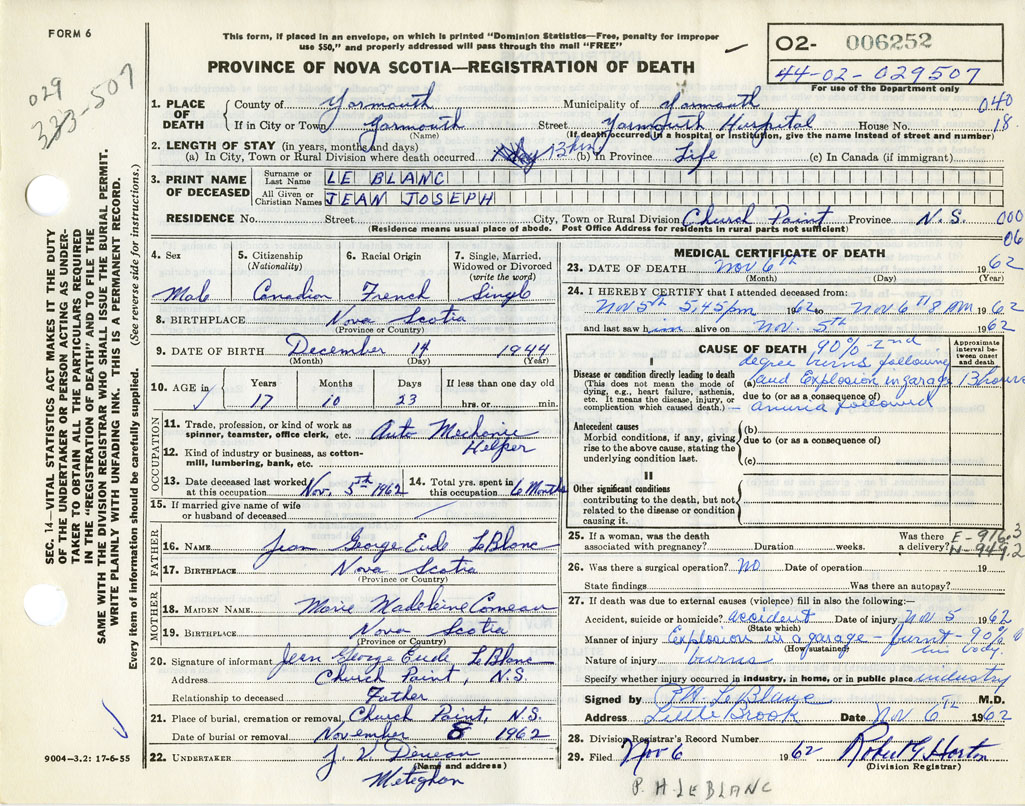 FORM 6
This form, if placed in an envelope, on which is printed "Dominion Statistics—Free, penalty for improper
use $50," and properly addressed will pass through the mail "FREE"
O2- 006252
44-02-029507
For use of the Department only
029
323-507
PROVINCE OF NOVA SCOTIA—REGISTRATION OF DEATH
1. PLACE OF DEATH
County of Yarmouth Municipality of Yarmouth 040
If in City or Town Yarmouth Street Yarmouth Hospital House No. 18
(Name) (If death occurred in a hospital or institution, give the name instead of street and number)
2. LENGTH OF STAY (in years, months and days)
(a) In City, Town or Rural Division where death occurred 13 hrs (b) In Province Life (c) In Canada (if immigrant)
3. PRINT NAME OF DECEASED
Surname or Last Name LE BLANC
All Given or Christian Names JEAN JOSEPH
RESIDENCE No. Street City, Town or Rural Division Church Point Province N.S. 000
(Residence means usual place of abode. Post Office Address for residents in rural parts not sufficient) 06
SEC. 14—VITAL STATISTICS ACT MAKES IT THE DUTY
OF THE UNDERTAKER OR PERSON ACTING AS UNDER-
TAKER TO OBTAIN ALL THE PARTICULARS REQUIRED
IN THE "REGISTRATION OF DEATH" AND TO FILE THE
SAME WITH THE DIVISION REGISTRAR WHO SHALL ISSUE THE BURIAL PERMIT.
WRITE PLAINLY WITH UNFADING INK. THIS IS A PERMANENT RECORD.
Every item of information should be carefully supplied. (See reverse side for instructions.)
4. Sex
Male
5. Citizenship
(Nationality)
Canadian
6. Racial Origin
French
7. Single, Married,
Widowed or Divorced
(write the word)
Single
8. BIRTHPLACE Nova Scotia
(Province or Country)
9. DATE OF BIRTH December 14 1944
(Month) (Day) (Year)
10. AGE in Years Months Days If less than one day old
17 10 23 hrs. or min.
OCCUPATION
11. Trade, profession, or kind of work as
spinner, teamster, office clerk, etc. Auto Mechanic
Helper
12. Kind of industry or business, as cotton-
mill, lumbering, bank, etc.
13. Date deceased last worked
at this occupation Nov. 5th 1962
14. Total yrs. spent in
this occupation 6 Months
15. If married give name of wife
or husband of deceased
FATHER
16. NAME Jean George Eude LeBlanc
17. BIRTHPLACE Nova Scotia
(Province or Country)
MOTHER
18. MAIDEN NAME Marie Madeleine Comeau
19. BIRTHPLACE Nova Scotia
(Province or Country)
20. Signature of informant Jean George Eude LeBlanc
Address Church Point, N.S.
Relationship to deceased Father
21. Place of burial, cremation or removal Church Point, N.S.
Date of burial or removal November 8 1962
22. UNDERTAKER J. V. Deveau
(Name and address)
Meteghan
9004—3.2: 17-6-55
MEDICAL CERTIFICATE OF DEATH
23. DATE OF DEATH Nov 6th 1962
(Month) (Day) (Year)
24. I HEREBY CERTIFY that I attended deceased from:
Nov 5th 5,45pm 1962 to Nov 6th 8 AM 1962
and last saw him alive on Nov. 5th 1962
CAUSE OF DEATH 90% - 2nd
Approximate interval between onset and death
I
degree burns following
Disease or condition directly leading to death
(This does not mean the mode of
dying, e.g., heart failure, asthenia,
etc. It means the disease, injury, or
complication which caused death.)
(a) and Explosion in garage 13 hours
due to (or as a consequence of)
- anuria followed
Antecedent causes
Morbid conditions, if any, giving
rise to the above cause, stating the
underlying condition last.
(b)
due to (or as a consequence of)
(c)
II
Other significant conditions
contributing to the death, but not
related to the disease or condition
causing it.
25. If a woman, was the death
associated with pregnancy? Duration weeks. Was there
a delivery?
E-916.3
N-949.2
26. Was there a surgical operation? No Date of operation 19
State findings Was there an autopsy?
27. If death was due to external causes (violence) fill in also the following:—
Accident, suicide or homicide? accident Date of injury Nov 5 1962
(State which)
Manner of injury Explosion in a garage - burnt - 90% of
(How sustained) his body.
Nature of injury burns
Specify whether injury occurred in industry, in home, or in public place industry
Signed by P.H. LeBlanc M.D.
Address Little Brook Date Nov 6th 1962
28. Division Registrar's Record Number
29. Filed Nov 6 1962 Robert G Horton
(Division Registrar)
P. H. LEBLANC